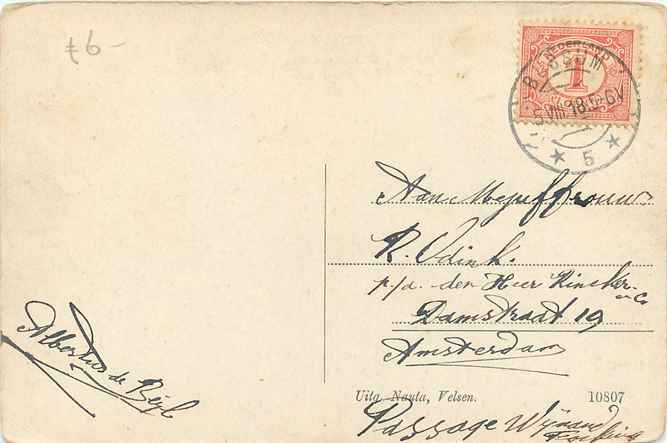 £6-
NEDERLAND
1
BUSSUM
5.VIII.18.5-6V
5
Aan Mejuffrouw
R. Udink.
p/a. den Heer Kinsker
en Co
Damstraat 19
Amsterdam
Albertus de Beijl
Uitg. Nauta, Velsen.
10807
Passage Wijnand